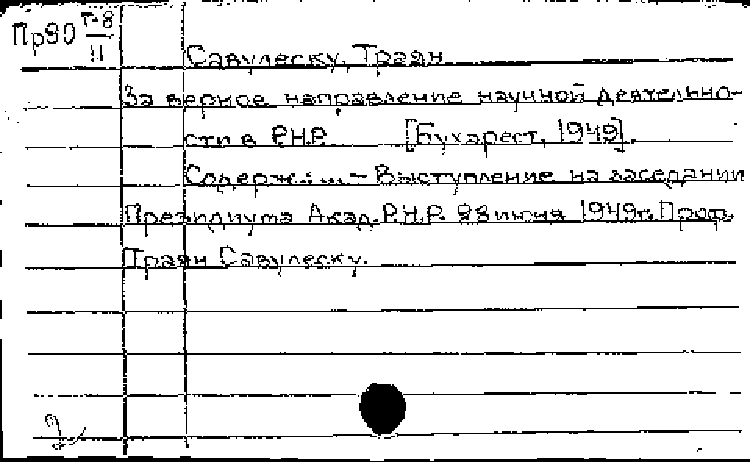 Пр90 Т-8
II
Савулеску, Траян
За верное направление научной деятельно-
сти в Р.Н.Р. [Бухарест, 1949].
Содерж.: ... - Выступление на заседании
Президиума Акад. Р.Н.Р. 23 июня 1949г. Проф.
Траян Савулеску.
2